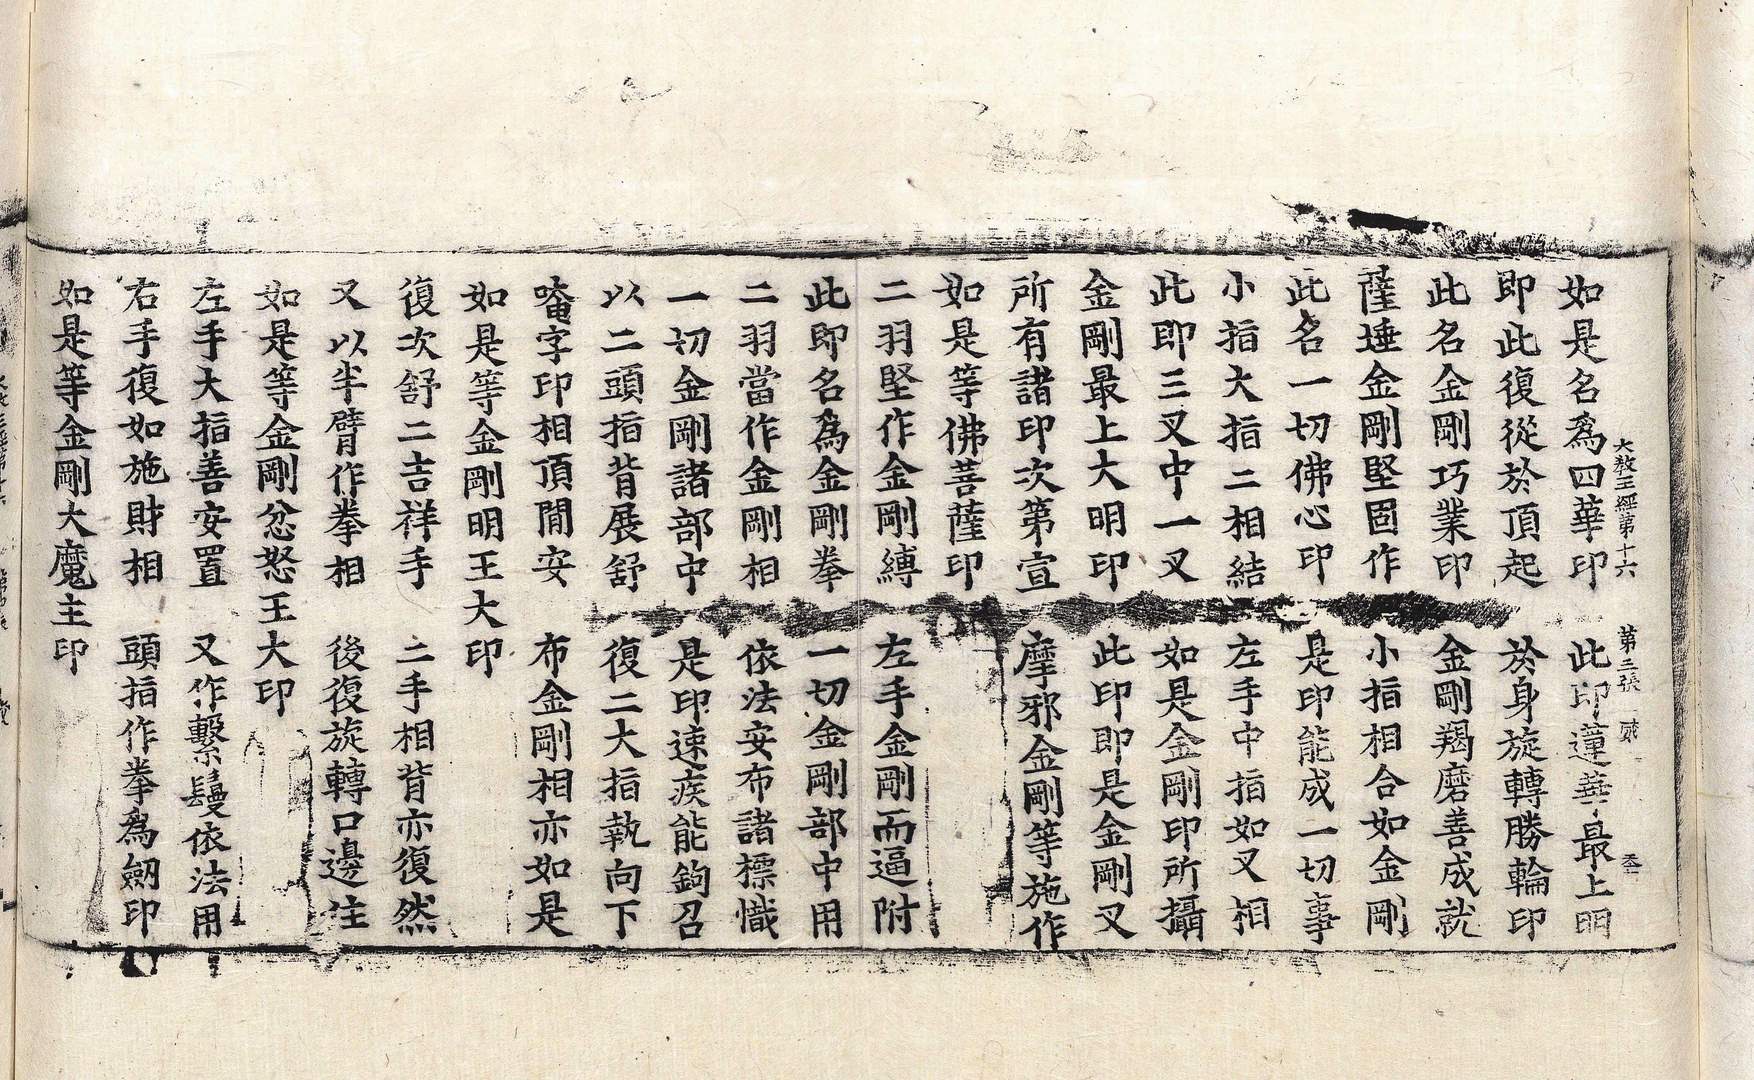 大教王經第十六　第三張
如是名爲四華印　此印蓮華最上明
即此復從於頂起　於身旋轉勝輪印
此名金剛巧業印　金剛羯磨善成就
薩埵金剛堅固作　小指相合如金剛
此名一切佛心印　是印能成一切事
小指大指二相結　左手中指如叉相
此即三叉中一叉　如是金剛印所攝
金剛最上大明印　此印即是金剛叉
所有諸印次第宣　摩邪金剛等施作
如是等佛菩薩印
二羽堅作金剛縛　左手金剛而逼附
此即名爲金剛拳　一切金剛部中用
二羽當作金剛相　依法安布諸摽幟
一切金剛諸部中　是印速疾能鉤召
以二頭指背展舒　復二大指執向下
唵字印相頂間安　布金剛相亦如是
如是等金剛明王大印
復次舒二吉祥手　二手相背亦復然
又以半臂作拳相　後復旋轉口邊住
如是等金剛忿怒王大印
左手大指善安置　又作繫鬘依法用
右手復如施財相　頭指作拳爲劒印
如是等金剛大魔主印